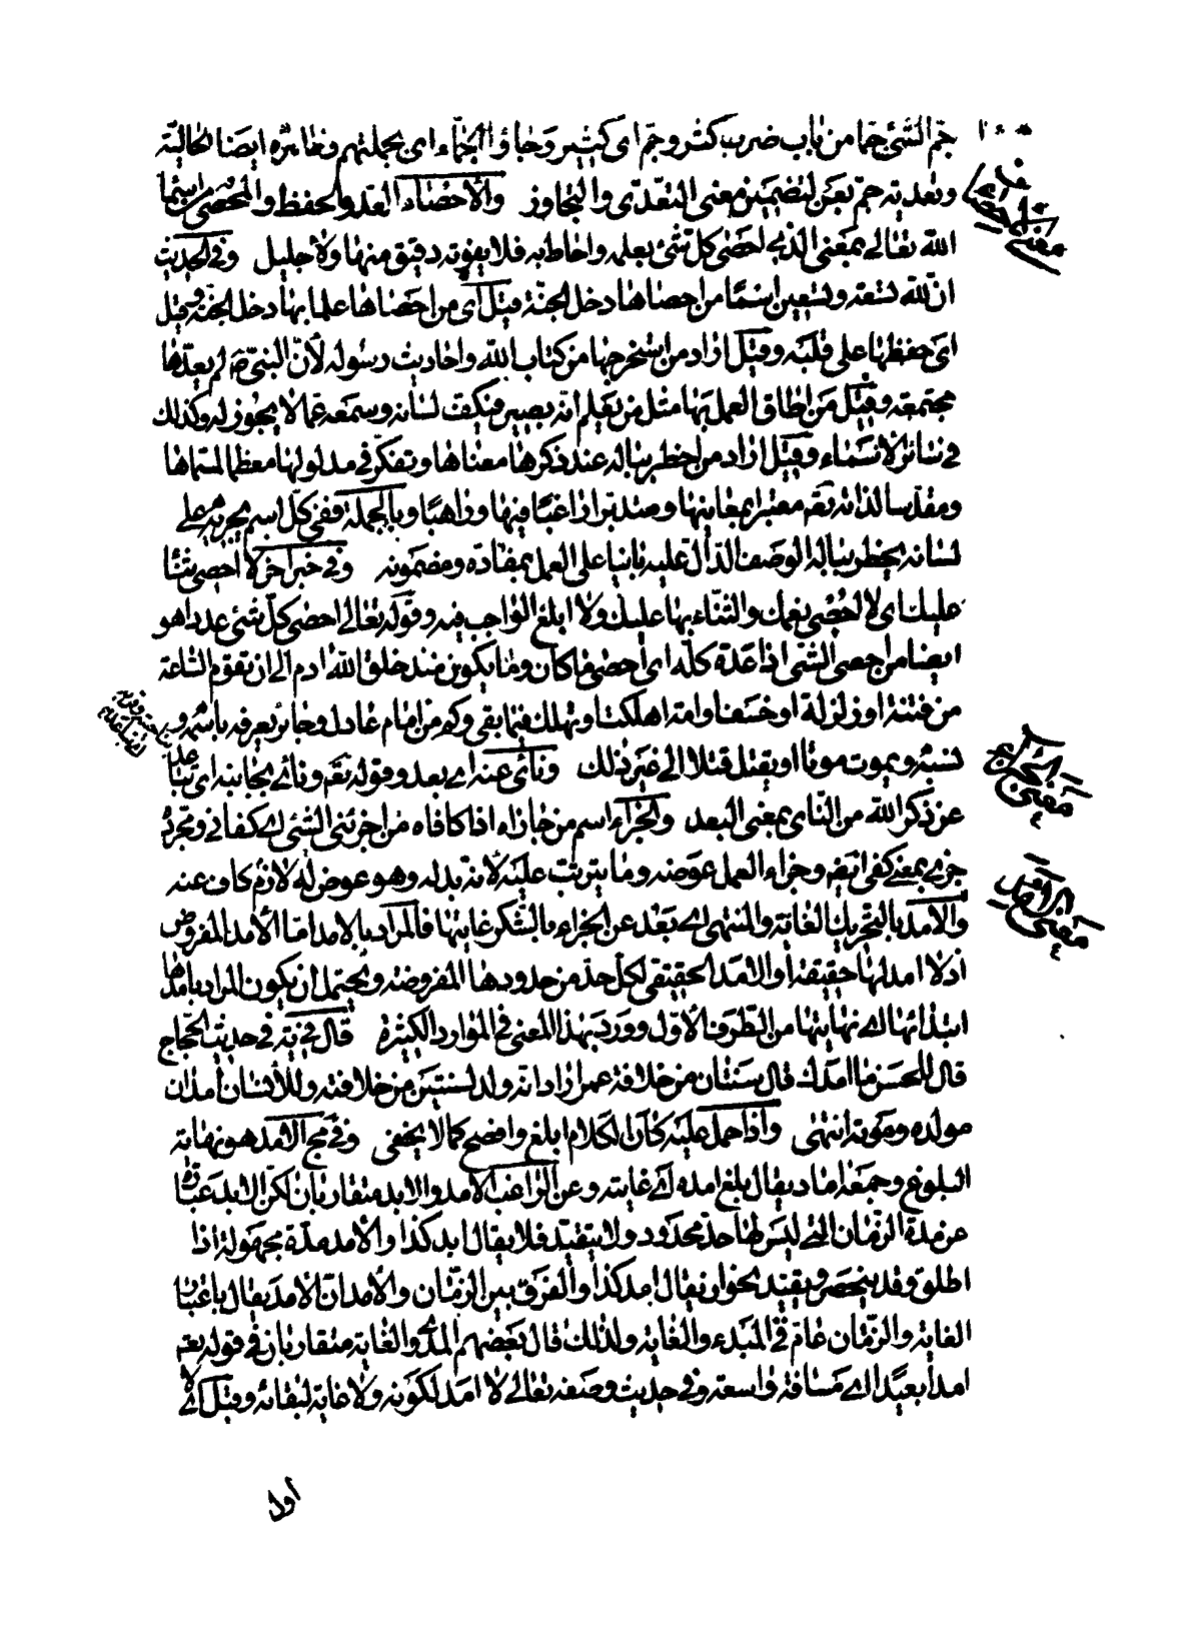 ١٠٠
جمّ الشّئ جمّا من باب ضرب كثر وجمّ اى كثير وجاؤا الجمّاء اى بجملتهم ونظائره ايضا الحاليّة
وتعديته جمّ بعن لتضمين معنى التعدّى والتجاوز والأحصاء العدّ والحفظ والمحصى من اسماء
الله تعالى بمعنى الذى احصى كلّ شئ بعلمه واحاط به فلا يفوته دقيق منها ولا جليل وفى الحديث
انّ لله تسعة وتسعين اسمًا من احصاها دخل الجنّة قيل اى من احصاها علما بها دخل الجنّة وقيل
اى حفظها على قلبه وقيل اراد من استخرجها من كتاب الله واحاديث رسوله لأنّ النبىّ ص لم يعدّها
مجتمعة وقيل من اطاق العمل بها مثل من يعلم انّه بصير فيكفّ لسانه وسمعه عمّا لا يجوز له وكذلك
فى سائر الأسماء وقيل اراد من اخطر بباله عند ذكرها معناها وتفكّر فى مدلولها معظما لمسمّاها
ومقدّسا لذاته تعم معتبرا بمعانيها ومتدبّرا راغبًا فيها وراهبًا وبالجملة ففى كلّ اسم يجريه على
لسانه يخطر بباله الوصف الدّال عليه بانيا على العمل بمفاده ومضمونه وفى خبر اخر لا احصى ثناء
عليك اى لا احصى نعمك والثناء بها عليك ولا ابلغ الواجب فيه وقوله تعالى احصى كلّ شئ عددا هو
ايضا من احصى الشئ اذا عدّه كلّه اى احصى ما كان وما يكون منذ خلق الله ادم الى ان تقوم السّاعة
من فتنة او زلزلة او خسف او امّة اهلكت او تهلك فيما بقى وكم من امام عادل وجائر يعرفه باسمه و
نسبه ويموت موتا او يقتل قتلا الى غير ذلك ونأى عنه اى بعد وقوله تعم ونأى بجانبه اى تباعد
عن ذكر الله من النأى بمعنى البعد والجزاء اسم من جازاه اذا كافاه من اجزئنى الشئ اى كفانى وتجرّد
جزى بمعنى كفى ايضم وجزاء العمل عوضه وما يترتّب عليه لأنّه بدله وهو عوض له لازم كاف عنه
والأمد بالتحريك الغاية والمنتهى اى بعد عن الجزاء بالشكر غايتها فالمراد بالامد امّا الأمد المفروض
اذ لا امد لها حقيقة او الأمد الحقيقى لكلّ حدّ من حدودها المفروضة ويحتمل ان يكون المراد بامدها
ابتدائها اى نهايتها من الطّرف الأوّل وورد بهذا المعنى فى الموارد الكثيرة قال فى يّة فى حديث الحجّاج
قال للحسن ما امدك قال سنتان من خلافة عمر اراد انّه ولد لسنتين من خلافته وللأنسان امدان
مولده وموته انتهى واذا حمل عليه كان الكلام ابلغ وافصح كما لا يخفى وفى مجّ الأمد هو نهاية
البلوغ وجمعه اماد يقال بلغ امده اى غايته وعن الرّاغب الأمد والابد متقاربان لكنّ الابد عبارة
عن مدة الزّمان التى ليس لها حدّ محدود ولا يتقيّد فلا يقال ابد كذا والأمد مدّة مجهولة اذا
اطلق وقد ينحصر ويقيّد نحو ان يقال امد كذا والفرق بين الزّمان والأمد انّ الأمد يقال باعتبار
الغاية والزّمان عامّ فى المبدء والغاية ولذلك قال بعضهم المدى والغاية متقاربان فى قوله تعم
امدا بعيدا اى مسافة واسعة وفى حديث وصفه تعالى لا امد لكونه ولا غاية لبقائه وقيل اى لا
اول
معنى الجزاء
معنى الامد